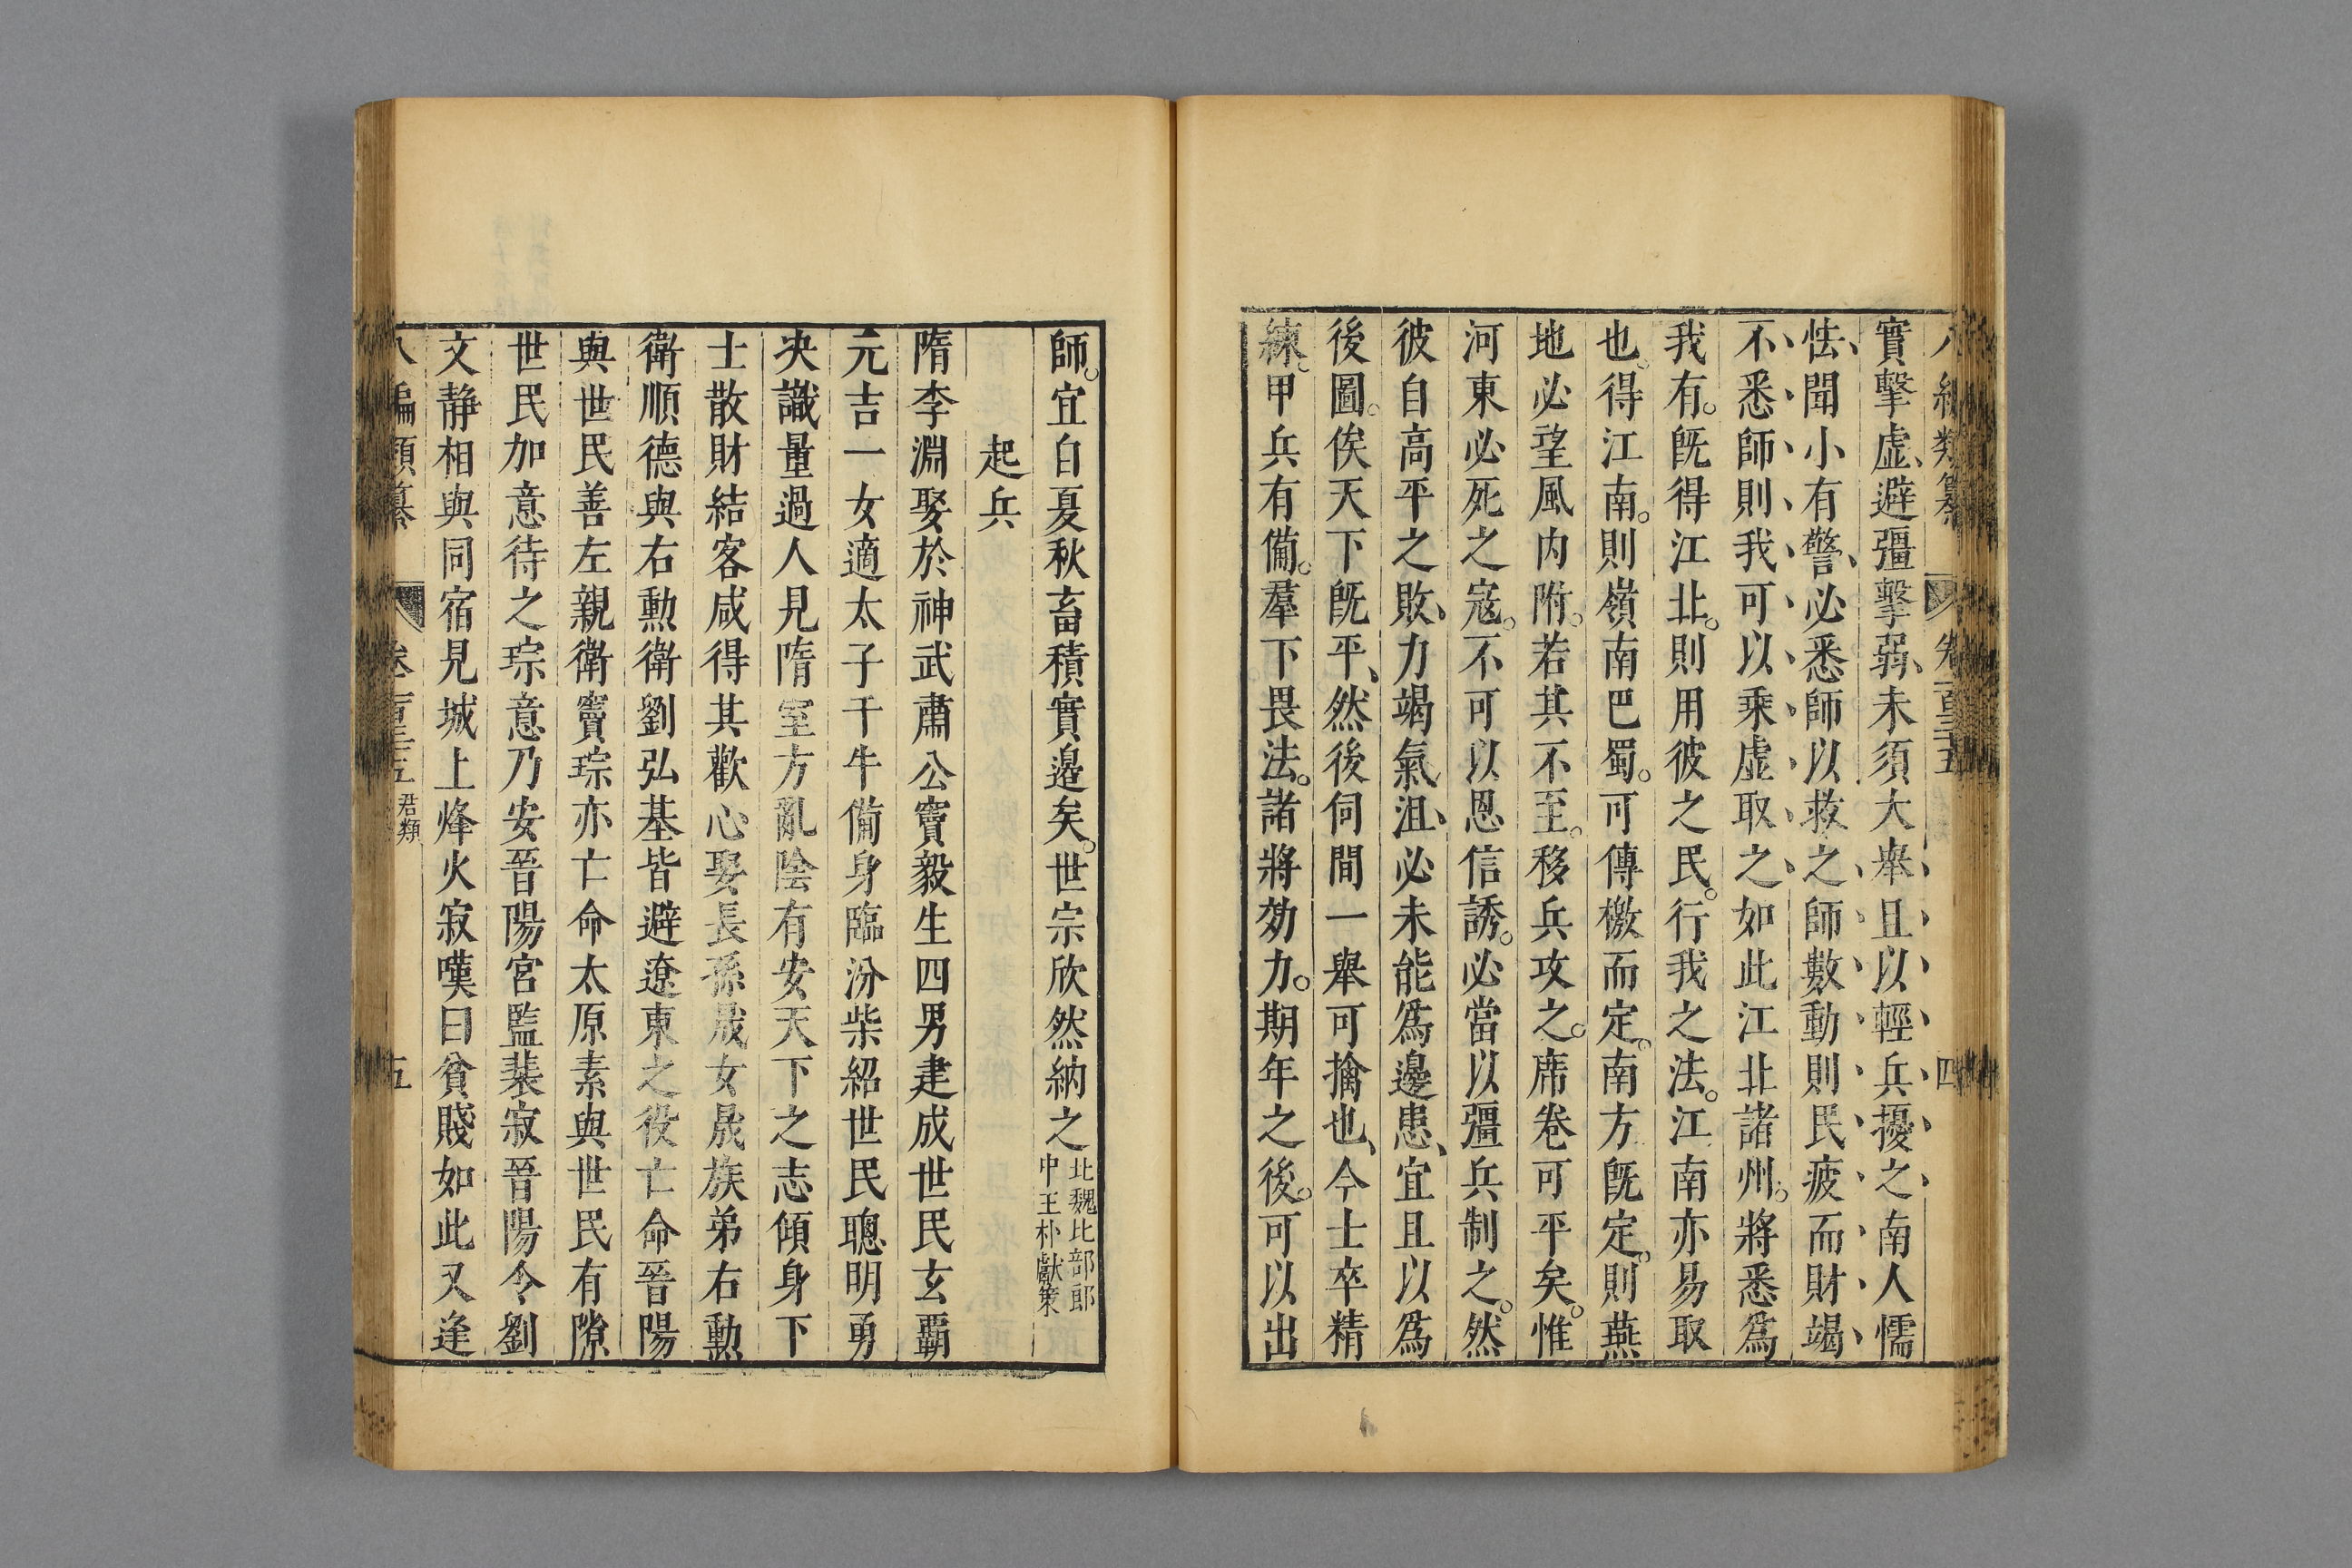 八編類纂 卷一百三十五 四
實擊虛、避彊擊弱、未須大舉、且以輕兵擾之、南人懦
怯、聞小有警、必悉師以救之、師數動則民疲而財竭、
不悉師則我可以乘虛取之、如此江北諸州。將悉爲
我有。旣得江北。則用彼之民。行我之法。江南亦易取
也。得江南。則嶺南巴蜀。可傳檄而定。南方旣定。則燕
地必望風內附。若其不至。移兵攻之。席卷可平矣。惟
河東必死之寇。不可以恩信誘。必當以彊兵制之。然
彼自高平之敗、力竭氣沮、必未能爲邊患、宜且以爲
後圖。俟天下旣平、然後伺間一舉可擒也、今士卒精
練。甲兵有備。羣下畏法。諸將効力。期年之後。可以出
師。宜自夏秋畜積實邊矣。世宗欣然納之 北魏比部郎中王朴獻策
起兵
隋李淵娶於神武肅公竇毅生四男建成世民玄霸
元吉一女適太子千牛備身臨汾柴紹世民聰明勇
决識量過人見隋室方亂陰有安天下之志傾身下
士散財結客咸得其歡心娶長孫晟女晟族弟右勲
衛順德與右勲衛劉弘基皆避遼東之役亡命晉陽
與世民善左親衛竇琮亦亡命太原素與世民有隙
世民加意待之琮意乃安晉陽宮監裴寂晉陽令劉
文靜相與同宿見城上烽火寂嘆曰貧賤如此又逢
八編類纂 卷一百三十五 君類 五